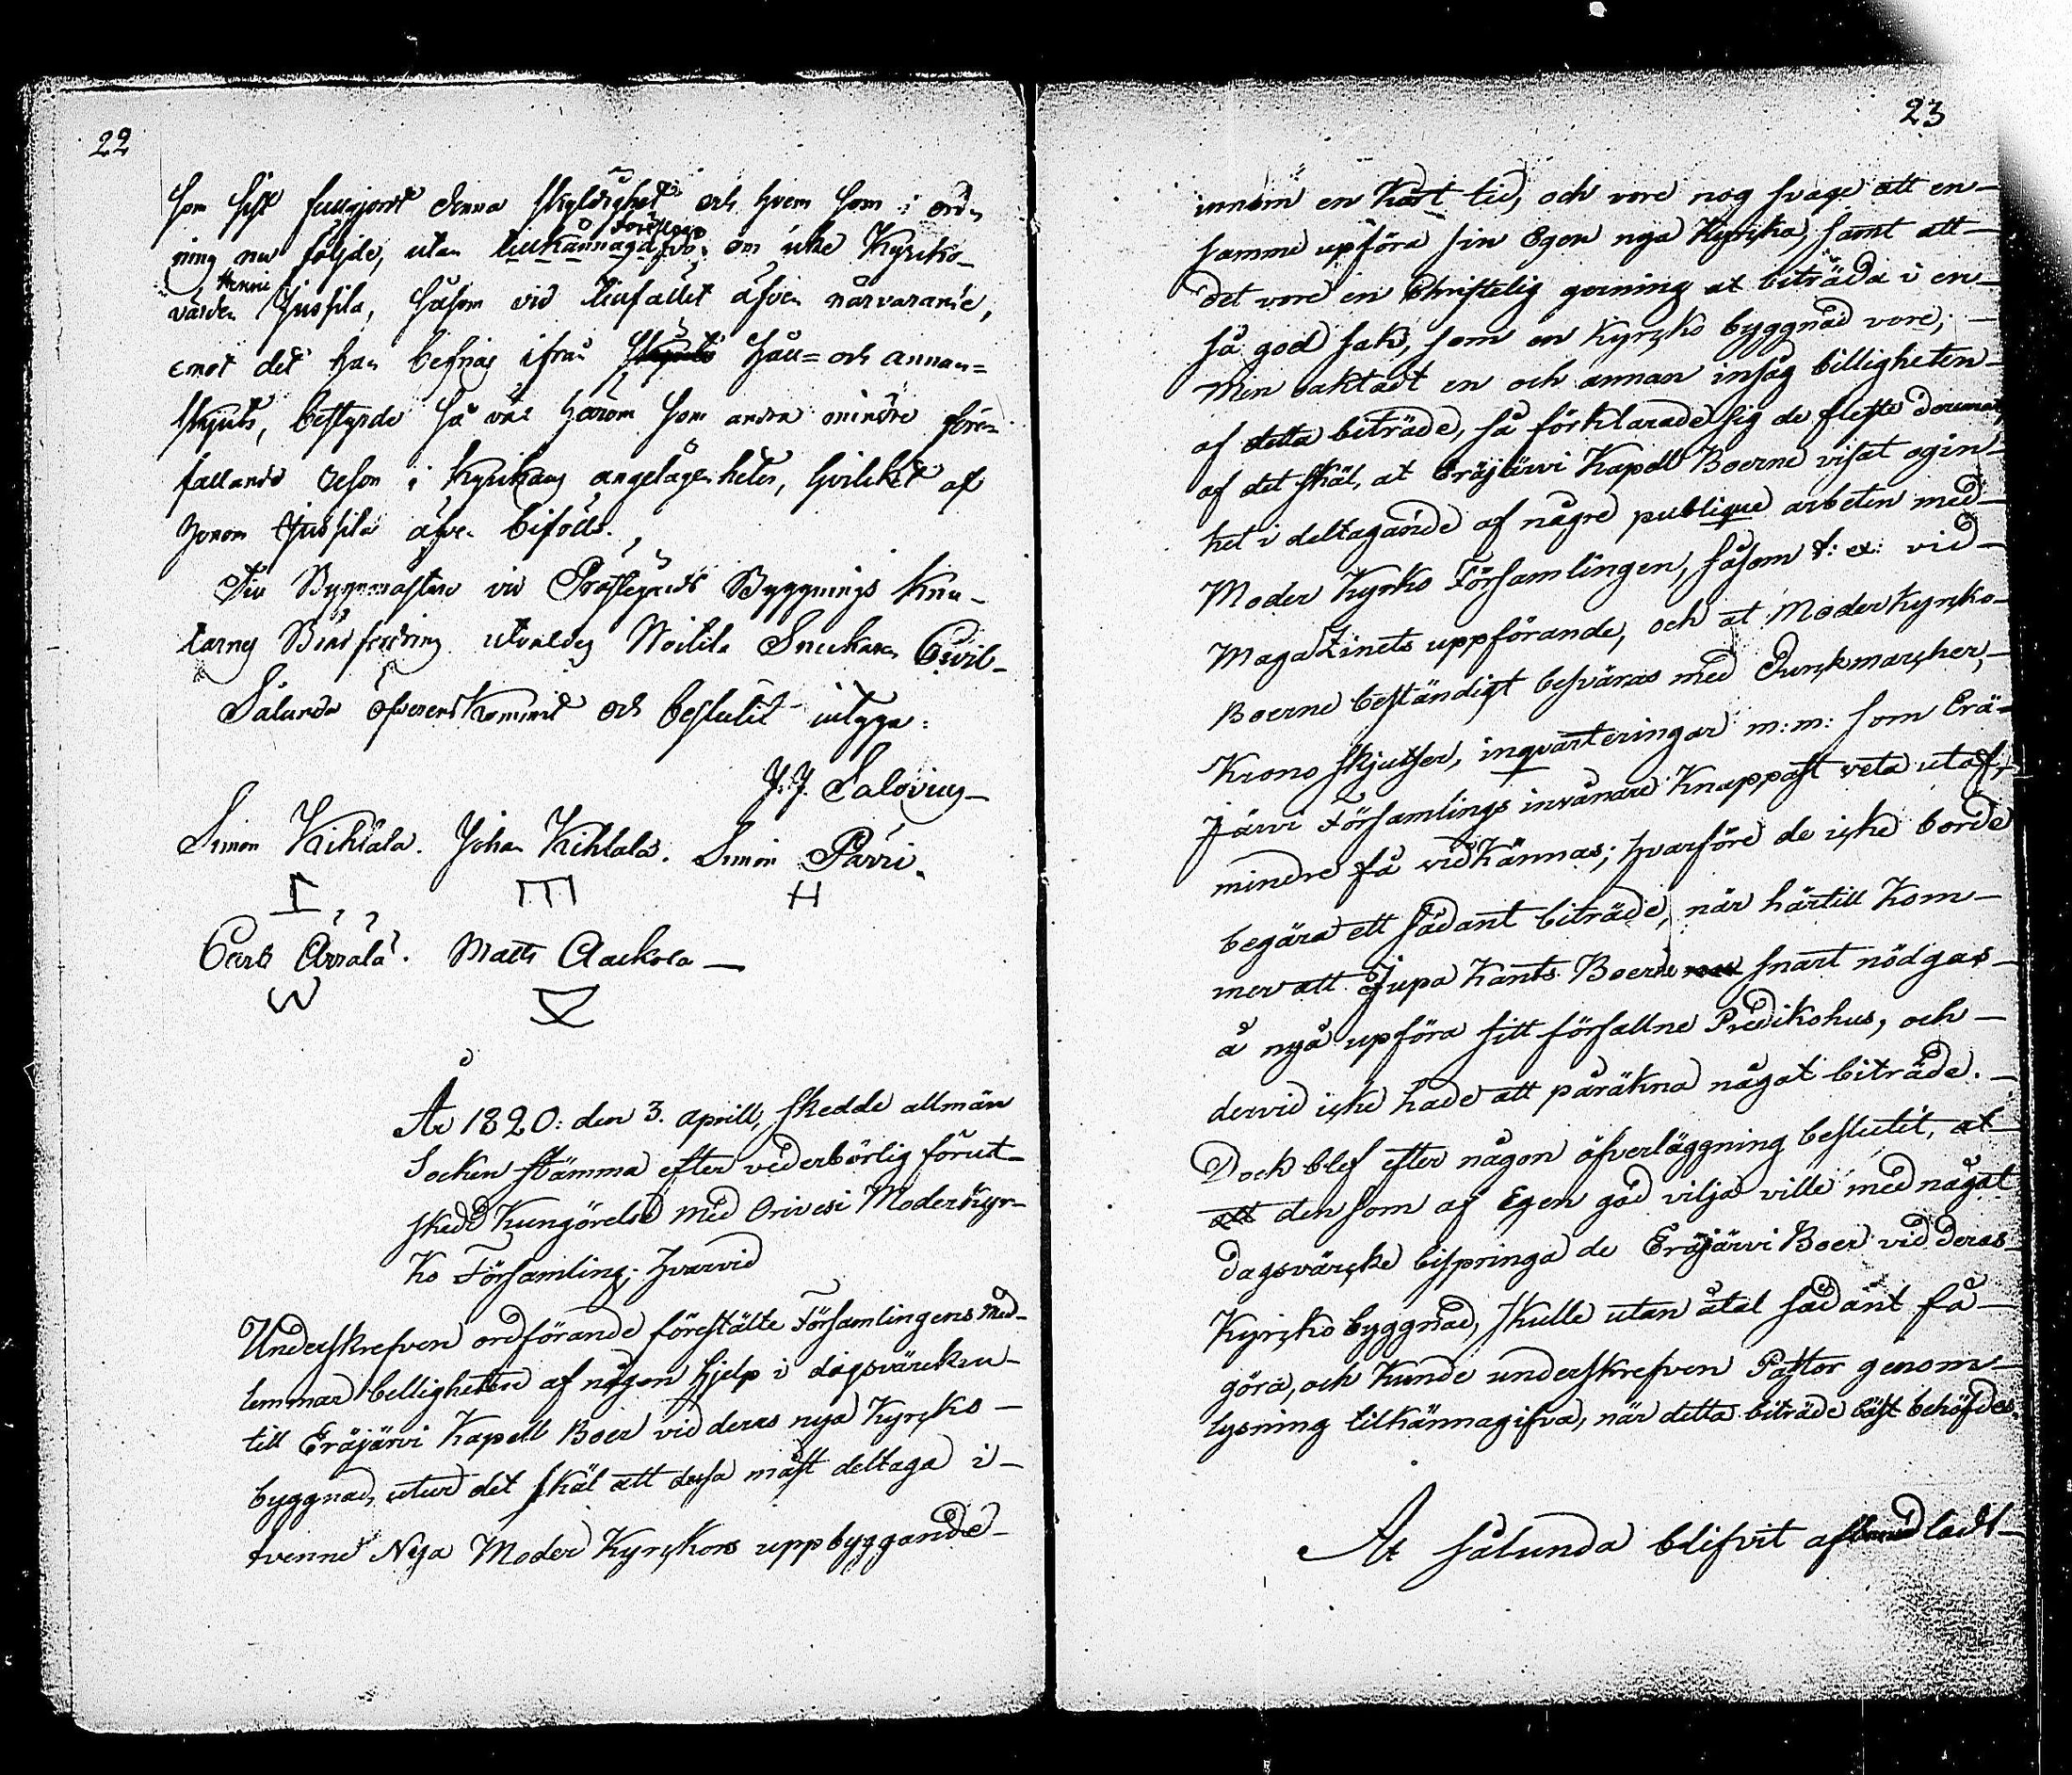 22
som sist fullgjordt denna skyldighet och hvem som i ord-
ning nu följde, utan föreslogs om icke Kyrko-
värden Henric Jussila, såsom vid tillfället äfven närvarande,
emot det han befrias ifrån håll- och annan-
skjuts, bestyrde så väl härom som andra mindre före-
fallande i Kyrkans angelägenheter, hvilket af
honom Jussila äfven bifölls.
Till Byggmästare vid Prästegårds Byggnings knu-
tarnes utvaldes Snickaren
Sålunda öfverenskommit och beslutit intyga:
J. J. Salovius
Simon Kihlala. Johan Kihlala. Simon Pärri.
Carl Arrala. Matts Aackola
År 1820: den 3. aprill, skedde allmän
Socken stämma efter vederbörlig förut-
skedd Kungörelse med Orivesi Moderkyr-
ko Församling; hvarvid
Underskrefven ordförande förestälte Församlingens med-
lemmar belligheten af någon hjelp i dagsvärcken
till Eräjärvi Kapell Boer vid deras nya Kyrcko-
byggnad, utur det skäl att dessa måst deltaga i
tvenne Nya Moder Kyrckors uppbyggande
23
innom en kort tid, och vore nog svage att en-
samme upföra sin Egen nya Kyrcka, samt att
det vore en Christelig gerning at biträda i en
så god sak, som en Kyrcko byggnad vore;
Men oaktadt en och annan insåg billigheten
af detta biträde, så förklarade sig de fleste deremot,
af det skäl, at Eräjärvi Kapell Boerne visat ogin-
het i deltagande af någre publique arbeten med
Moder Kyrko Församlingen, såsom t: ex: vid
Magazinets uppförande, och at Moder Kyrcko-
Boerne beständigt besväras med Durckmarcher,
Krono skjutser, inqvarteringar m: m: som Erä-
järvi Församlings invånare knappast veta utaf,
mindre få vidkännas; hvarföre de icke borde
begära ett sådant biträde, när härtill kom-
mer att Jupa Kants Boerne snart nödgas
å nya upföra sitt förfallne Predikohus, och
dervid icke hade att påräkna något biträde.
Dock blef efter någon öfverläggning beslutit, at
att den som af Egen god vilja ville med något
dagsvärcke bispringa de Eräjärvi Boer vid deras
Kyrcko byggnad, skulle utan åtal sådant få
göra, och kunde underskrefven Pastor genom
lysning tilkännagifva, när detta biträde bäst behöfdes.
At sålunda blifvit afhandladt